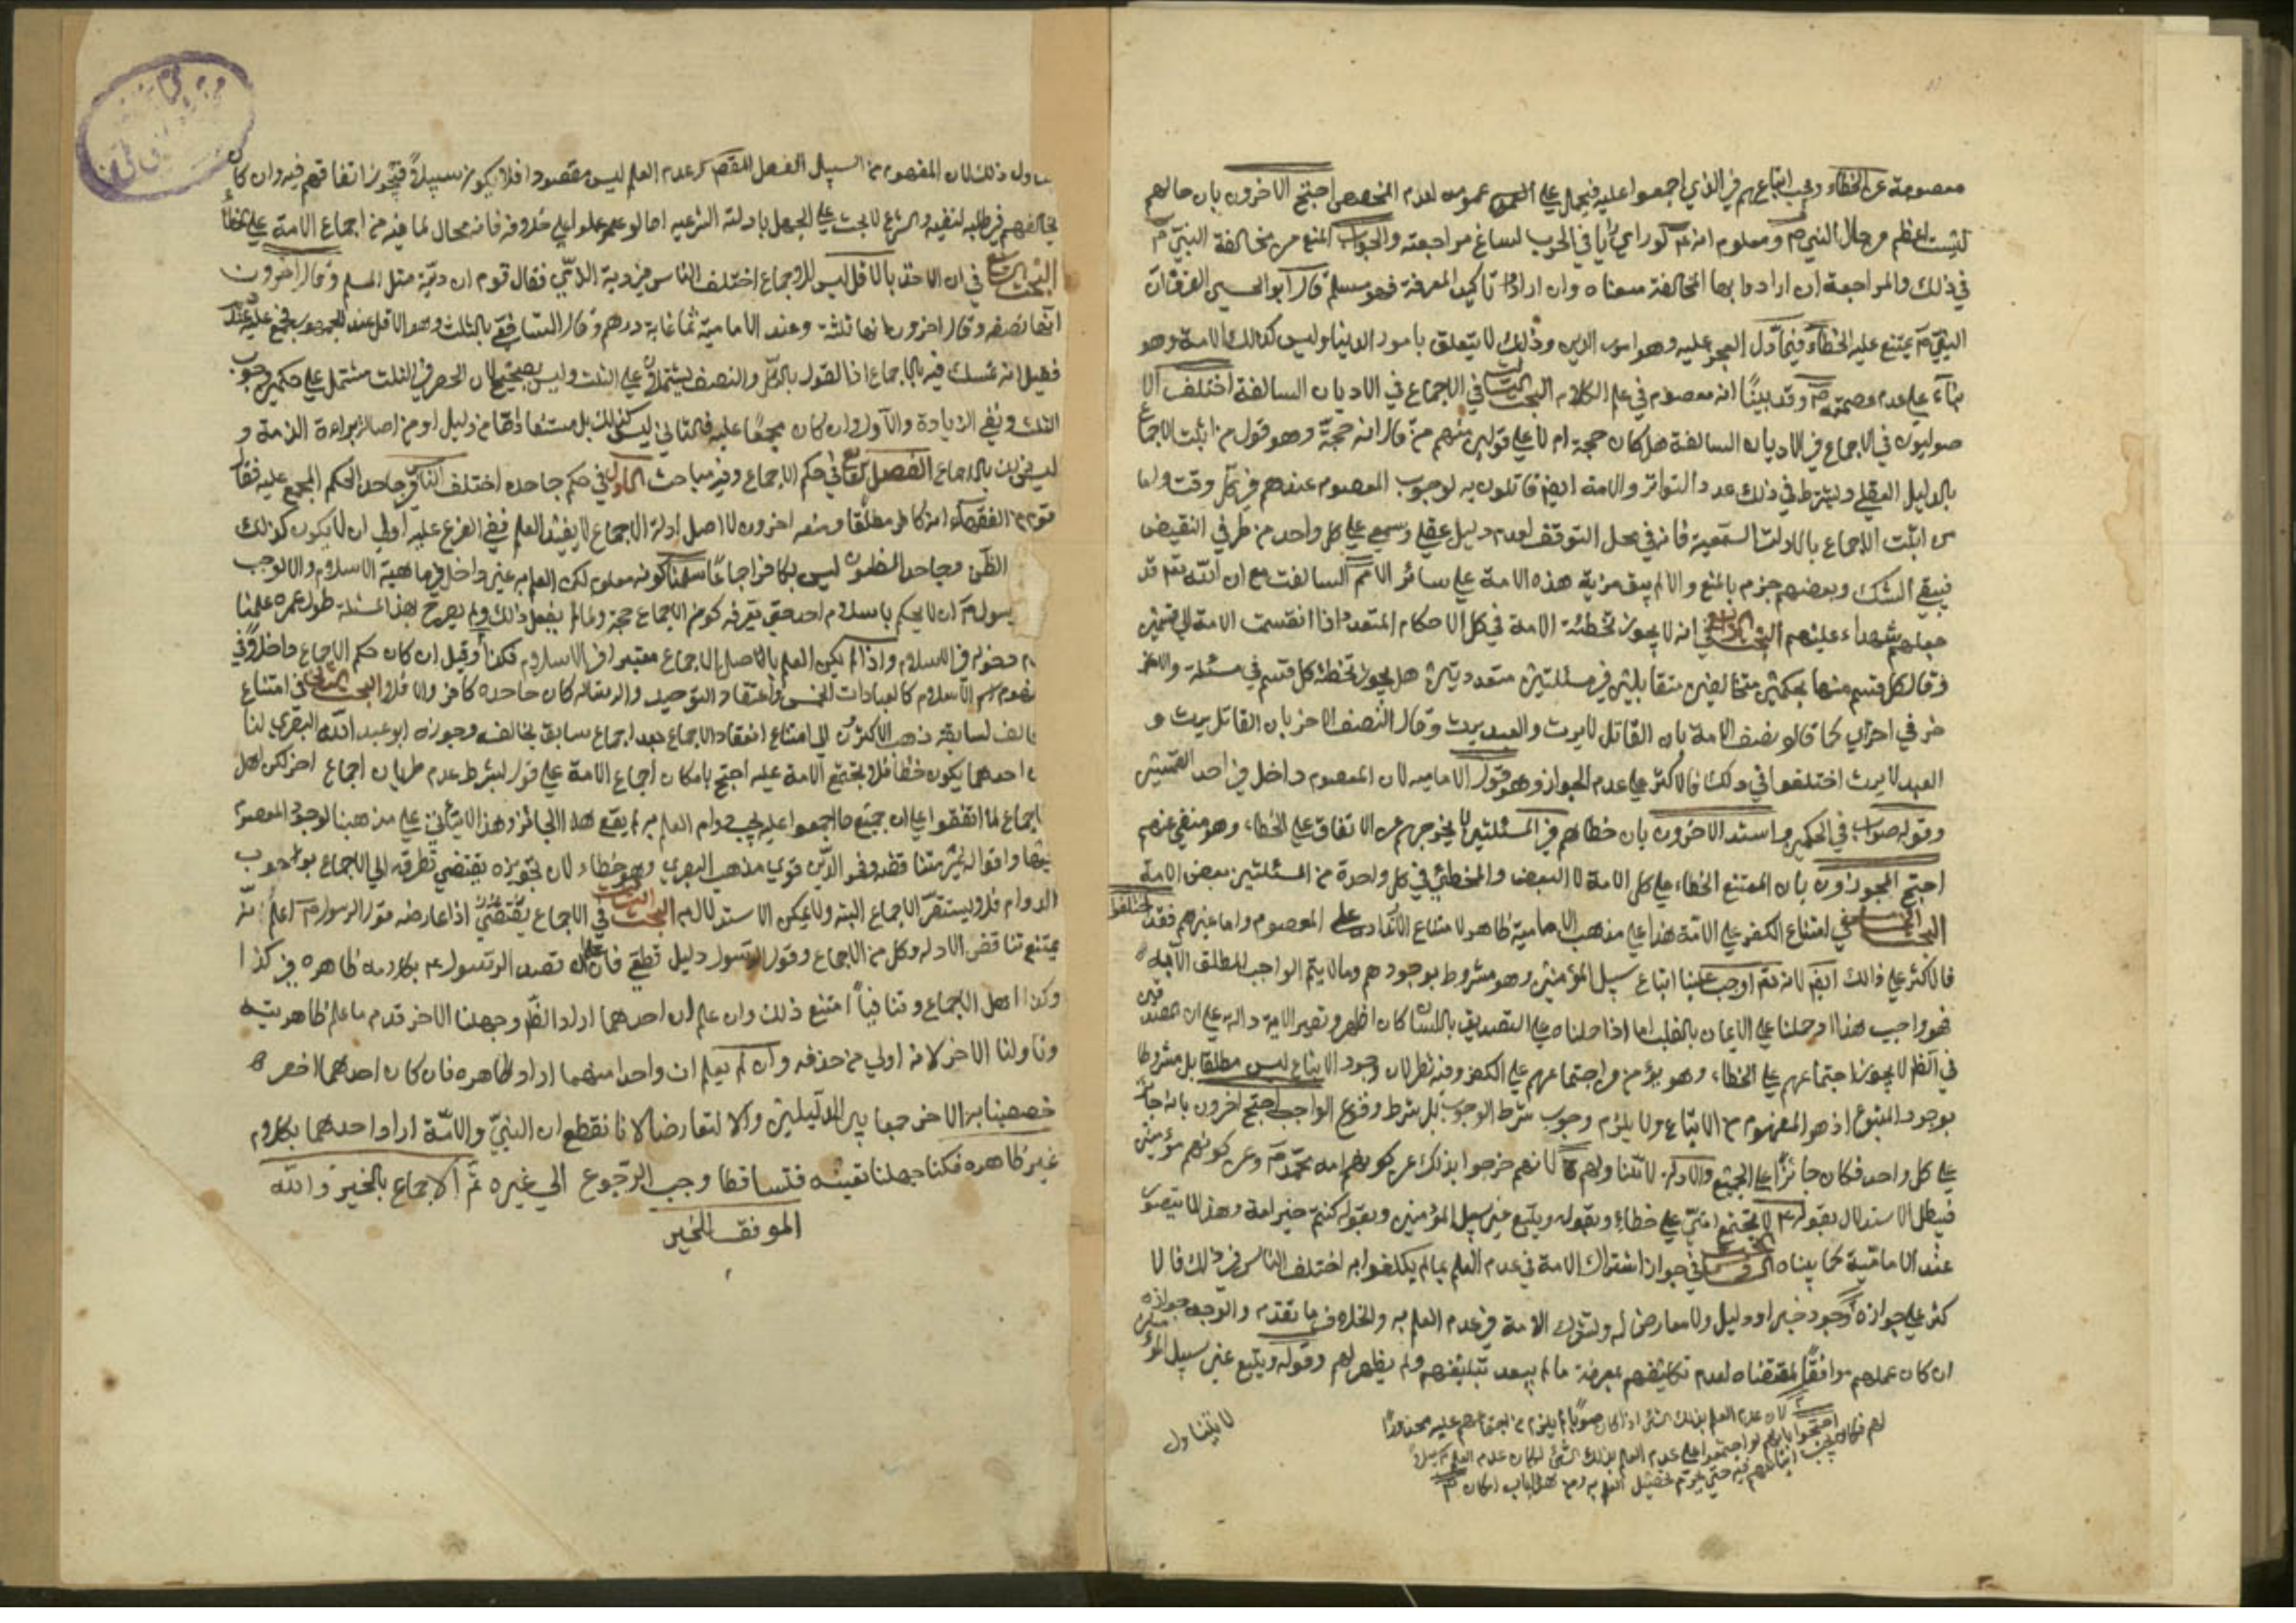 معصومة عن الخطاء وجب اتباعهم في الذي اجمعوا عليه فيحمل على عمومه لعدم المخصص احتج الاخرون بان حالهم
ليست اعظم من حال النبي ص ومعلوم انه لو راى رايا في الحرب لساغ مراجعته والجواب المنع من مخالفة النبي ص
في ذلك والمراجعة ان ارادوا بها المخالفة منعناه وان ارادوا تاكيد المعرفة فهو مسلم قال ابو الحسين الفرق ان
النبي ص يمتنع عليه الخطاء فيما دل المعجز عليه وهو امور الدين وذلك لا يتعلق بامور الدنيا وليس كذلك الامة وهو
بناء على عدم عصمته ص وقد بينا انه معصوم في علم الكلام البحث الثالث في الاجماع في الاديان السالفة اختلف الا
صوليون في الاجماع في الاديان السالفة هل كان حجة ام لا على قولين منهم من قال انه حجة وهو قول من اثبت الاجماع
بالدليل العقلي وليشترط في ذلك عدد التواتر والامامية ايضا قائلون به لوجوب المعصوم عندهم في كل وقت واما
من اثبت الاجماع بالادلة السمعية فانه في محل التوقف لعدم دليل عقلي وسمعي على كل واحد من طرفي النقيض
فيبقى الشك وبعضهم جزم بالمنع والا لم يبق مزية هذه الامة على سائر الامم السالفة مع ان الله تع قد
جعلهم شهداء عليهم البحث الرابع في انه لا يجوز تخطئة الامة في كل الاحكام المتعددة اذا انقسمت الامة الى قسمين
وقال كل قسم منها بحكمين متخالفين متقابلين في مسئلتين متعددتين هل يجوز تخطئة كل قسم في مسئلة والاخر
في اخرى كما قال نصف الامة بان القاتل لا يرث والعبد يرث وقال النصف الاخر بان القاتل يرث و
العبد لا يرث اختلفوا في ذلك فالاكثر على عدم الجواز وهو قول الامامية لان المعصوم داخل في احد القسمين
وقوله صواب في الحكمين واستدل الاخرون بان خطاهم في المسئلتين لا يخرجهم عن الاتفاق على الخطاء وهو منفي عنهم
احتج المجوزون بان الممتنع الخطاء على كل الامة لا البعض والمخطئ في كل واحدة من المسئلتين بعض الامة
البحث الخامس في امتناع الكفر على الامة هذا على مذهب الامامية ظاهر لامتناع الكفر على المعصوم واما غيرهم فقد اختلفوا
فالاكثر على ذلك ايضا لانه تع اوجب علينا اتباع سبيل المؤمنين وهو مشروط بوجودهم وما لا يتم الواجب المطلق الا به
فهو واجب هذا اذا حملنا على الايمان بالقلب اما اذا حملناه على التصديق باللسان كان اظهر وتصير الاية دالة على ان المصدقين
في الظ لا يجوز اجتماعهم على الخطاء وهو يؤمن من اجتماعهم على الكفر وفيه نظر لان وجود الاتباع ليس مطلقا بل مشروطا
بوجود المتبوع اذ هو المفهوم من الاتباع ولا يلزم وجوب شرط الوجوب بل شرط وقوع الواجب احتج اخرون بانه جائز
على كل واحد فكان جائزا على الجميع والادلة لا تتناولهم لانهم خرجوا بذلك عن كونهم امة محمد ص وعن كونهم مؤمنين
فيبطل الاستدلال بقوله ع لا تجتمع امتي على خطاء وبقوله ويتبع غير سبيل المؤمنين وبقوله كنتم خير امة وهذا لا يتصور
عند الامامية كما بيناه البحث السادس في جواز اشتراك الامة في عدم العلم بما لم يكلفوا به اختلف الناس في ذلك فالا
كثر على جوازه وجود خبر او دليل ولا معارض له وتشترك الامة في عدم العلم به والخلاف ما تقدم والوجه جوازه
ان كان عملهم موافقا لمقتضاه لعدم تكليفهم بمعرفة ما لم يبعد تبليغهم ولم يظهر لهم وقوله ويتبع غير سبيل المؤمنين
لان عدم العلم بذلك الشئ اذا كان صوابا لم يلزم من اجتماعهم عليه محذور
احتجوا بانهم لو اجتمعوا على عدم العلم بذلك الشئ لكان عدم العلم سبيلا
لهم فكان يجب اتباعهم فيه حتى يحرم تحصيل العلم به
لا يتناول
يتناول ذلك لان المفهوم من السبيل الفعل المقصود وعدم العلم ليس مقصودا فلا يكون سبيلا فيجوز اتفاقهم فيه وان كان
البحث السابع في ان الاخذ بالاقل ليس للاجماع اختلف الناس في دية الذمي فقال قوم ان ديته مثل المسلم وقال اخرون
انها نصفه وقال اخرون انها ثلثه وعند الامامية ثمانماية درهم وقال الشافعي بالثلث وهو الاقل عند الجمهور
فقيل انه تمسك فيه بالاجماع اذ القول بالكل والنصف يشتملان على الثلث وليس بصحيح لان الحصر في الثلث مشتمل على حكمين وجوب
الثلث ونفي الزيادة والاول وان كان مجمعا عليه فالثاني ليس كذلك بل مستفاد اما من دليل او من اصالة براءة الذمة و
ليس ذلك بالاجماع الفصل الرابع في حكم الاجماع وفيه مباحث الاول في حكم جاحده اختلف الناس في جاحد الحكم المجمع عليه فقال
قوم من الفقهاء انه كافر مطلقا ومنعه اخرون لان اصل ادلة الاجماع لا يفيد العلم ففي الفرع عليه اولى ان لا يكون كذلك
الظن وجاحد المظنون ليس بكافر اجماعا سلمنا كونه معلوم لكن العلم به غير داخل في ماهية الاسلام والا لوجب
الرسول ص ان لا يحكم باسلام احد حتى يعرفه كون الاجماع حجة ولما لم يفعل ذلك ولم يصرح بهذا المسئلة طول عمره علمنا
دخوله في الاسلام واذا لم يكن العلم بالاصل الاجماع معتبرا في الاسلام فكذا وقيل ان كان حكم الاجماع داخلا في
مفهوم اسم الاسلام كالعبادات الخمس واعتقاد التوحيد والرسالة كان جاحده كافرا والا فلا البحث الثاني في امتناع
ذهب الاكثر الى امتناع انعقاد الاجماع بعد اجماع سابق يخالفه وجوزه ابو عبد الله البصري لنا
احدهما يكون خطأ فلا تجتمع الامة عليه احتج بامكان اجماع الامة على قول بشرط عدم طريان اجماع اخر لكن اهل
الاجماع لما اتفقوا على ان جميع ما اجمعوا عليه يجب دوام العلم به لم يقع هذا الجائز وهذا لا يتأتى على مذهبنا لوجود المعصوم
قوي مذهب البصري وهو خطاء لان تجويزه يقتضي تطرقه الى الاجماع بوجوب
الدوام فلا يستقر الاجماع البتة ولا يمكن الاستدلال به البحث الثالث في الاجماع اذا عارضه قول الرسول ص اعلم انه
يمتنع تناقض الادلة وكل من الاجماع وقول الرسول دليل قطعي فان علم قصد الرسول ع بكلامه ظاهره في كذا
وكذا اهل الاجماع وتنافيا امتنع ذلك وان علم ان احدهما اراد الظ وجهلنا الاخر قدم ما علم ظاهريته
وتاولنا الاخر لانه اولى من حذفه وان لم يعلم ان واحدا منهما اراد ظاهره فان كان احدهما اخص
خصصنا به الاخر جمعا بين الدليلين والا لتعارضا لانا نقطع ان النبي والامة اراد احدهما بكلامه
غير ظاهره فكنا جهلنا تعيينه فتساقطا وجب الرجوع الى غيره تم الاجماع بالخير والله
الموفق الخير